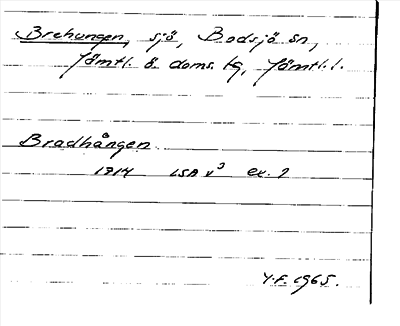 Brehungen, sjö, Bodsjö sn,
Jämtl. ö. doms. tg, Jämtl. l.
Bradhången
1914 LSA v3 ex. 2
Y.F. 1965.